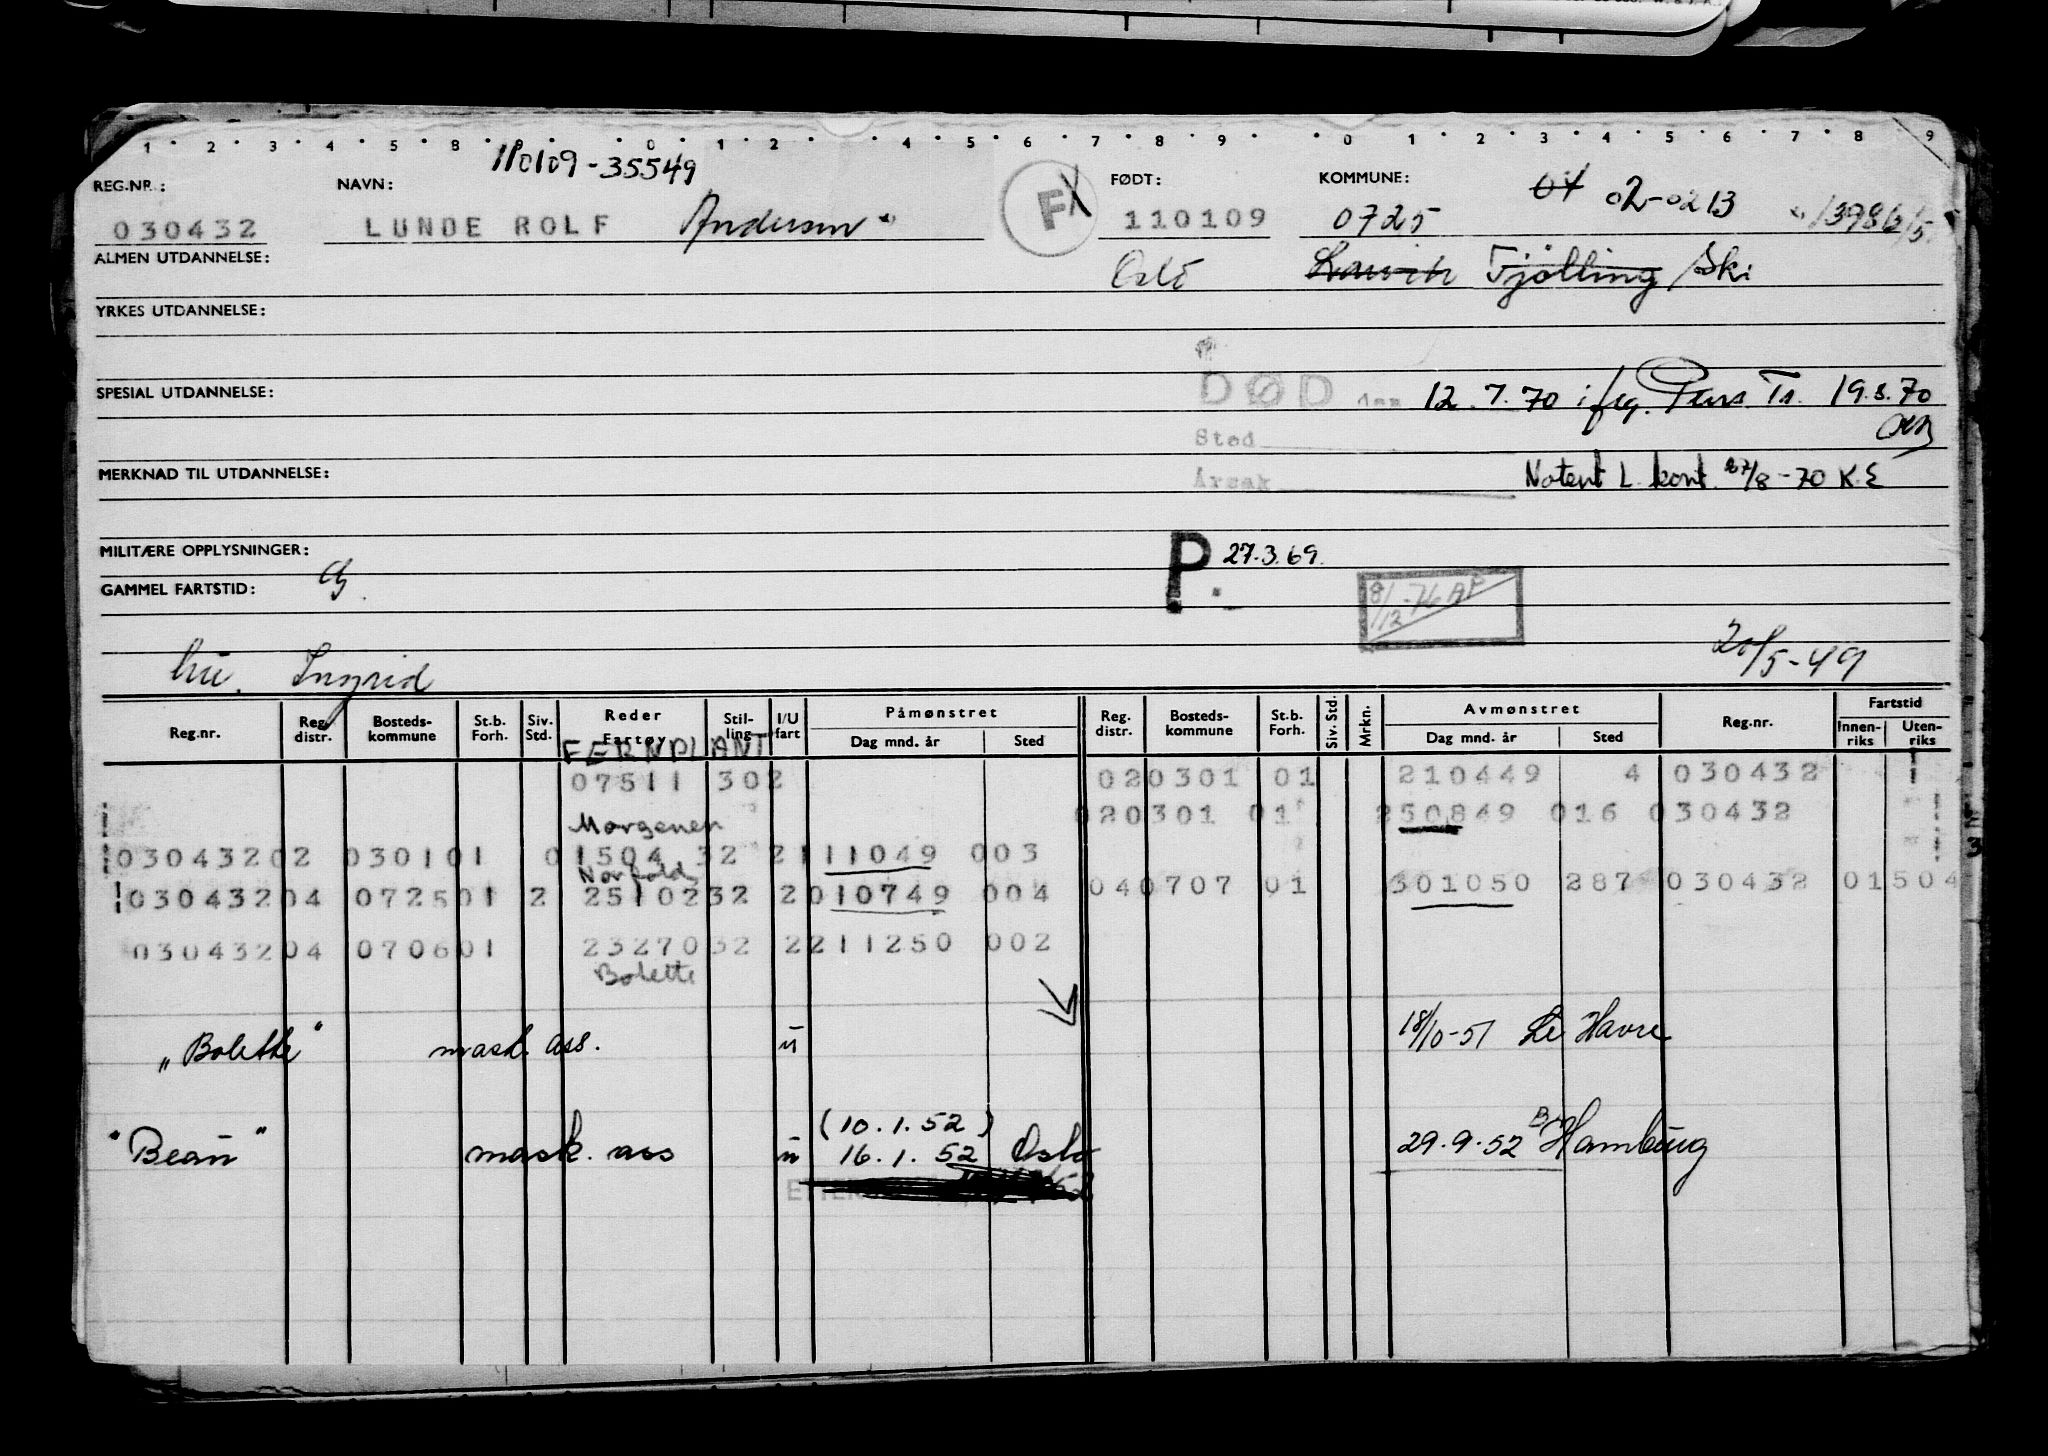 1 2 3 4 5 8 0 1 2 4 5 6 7 8 9 0 1 2 3 4 5 6 7 8 9
110109-35549
REG.NR.: NAVN: F FØDT: KOMMUNE: 04 02-0213
030432 LUNDE ROLF Anderson 110109 0725
ALMEN UTDANNELSE: Oslo Larvik Tjølling Ski
YRKES UTDANNELSE:
SPESIAL UTDANNELSE: DØD 12.7.70 ifлg. Pens Tr. 19.8.70
Sted
MERKNAD TIL UTDANNELSE: Årsak Notert L. kort. 27/8-70 K.E
MILITÆRE OPPLYSNINGER: P. 27.3.69.
GAMMEL FARTSTID: 8/12-76 AP
hu. Ingrid 20/5-49
Reg.nr. Reg. distr. Bosteds- kommune St.b. Forh. Siv. Std. Reder Fartøy Stil- ling I/U fart Påmønstret Dag mnd. år Sted Reg. distr. Bosteds- kommune St.b. Forh. Siv. Std. Mrkn. Avmønstret Dag mnd. år Sted Reg.nr. Fartstid Innen- riks Uten- riks
FERNPLANT
07511 302 020301 01 210449 4 030432
Morgenen 020301 01 250849 016 030432
03043202 030101 01504 32 2111049 003
Norfold
03043204 072501 2 2510232 2010749 004 040707 01 301050 287 030432 01504
03043204 070601 2327032 2211250 002
Bolette
"Bolette" mask. ass. u 18/10-51 Le Havre
(10.1.52)
"Beau" mask. ass u 16.1.52 Oslo 29.9.52 Hamburg